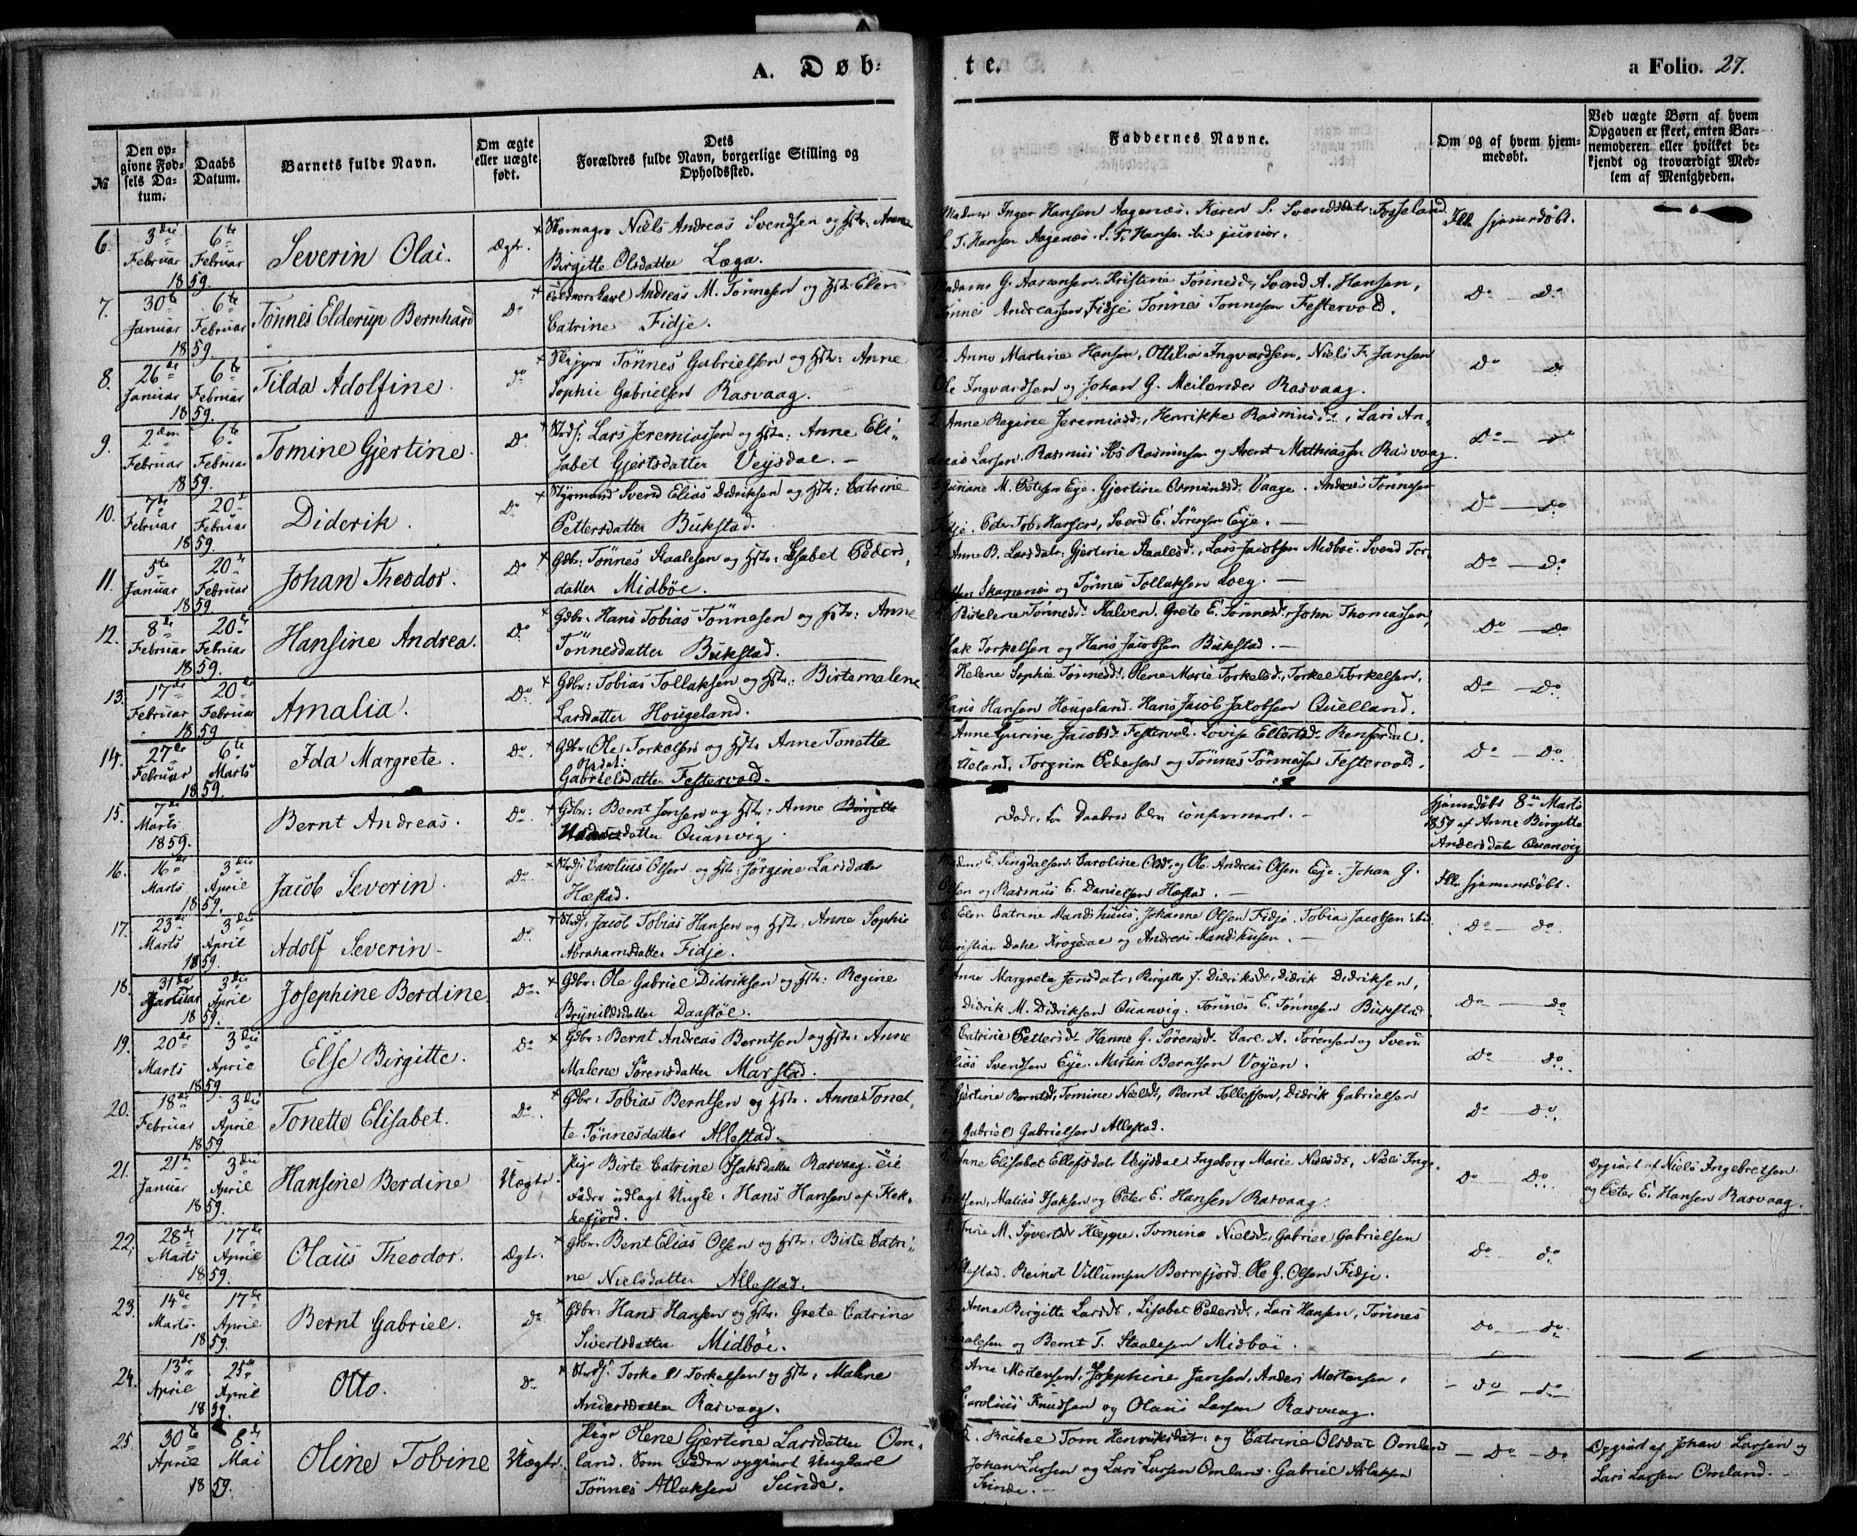 A. Døb-
te.
a Folio. 27.
№
Den op-
givne Fød-
sels Da-
tum.
Daabs
Datum.
Barnets fulde Navn.
Om ægte
eller uægte
født.
Dets
Forældres fulde Navn, borgerlige Stilling og
Opholdssted.
Faddernes Navne.
Om og af hvem hjem-
medøbt.
Ved uægte Børn af hvem
Opgaven er skeet, enten Bar-
nemoderen eller hvilket be-
kjendt og troværdigt Med-
lem af Menigheden.
6. 3die Februar 1859. 6te Februar Severin Olai. Ægte.
Niels Andreas Svendsen og Hstr. Anne
Birgitte Olsdatter Læga.
Madam Inger Hansen Aagenæs. Karen S. Svendsdatr. Fosseland
S. T. Hansen Aagenæs. S. T. Hansen junior.
Ikke hjemmedøbt.
7. 30te Januar 1859. 6te Februar Tønnes Elderup Bernhard Do
Andreas M. Tønnesen og Hstr. Elen
Catrine Fidje.
Madam G. Aanensen. Kristine Tønnesd., Svend A. Hansen,
Tønnes Andreassen Fidje Tønnes Tønnesen Festervold.
Do — Do
8. 26de Januar 1859. 6te Februar Tilda Adolfine. Do
Skipper Tønnes Gabrielsen og Hstr: Anne
Sophie Gabrielsen Rasvaag.
Anne Martine Hansen, Ottilia Ingvardsen, Niels F. Jansen
Ole Ingvardsen og Johan G. Meilender Rasvaag.
Do — Do
9. 2den Februar 1859. 6te Februar Tomine Gjertine. Do
Strds: Lars Jeremiassen og Hstr: Anne Eli-
sabet Gjertsdatter Veisdal. —
Anne Regine Jeremiasd., Henrikke Rasmusd., Lars An-
dreas Larsen. Rasmus Rasmusen og Arent Mathiassen Rasvaag.
Do — Do
10. 7de Februar 1859. 20de Februar Diderik. Do
Styrmand Svend Elias Didriksen og Hstr: Catrine
Pettersdatter Bukstad.
M. Petersen Eye. Gjertine Osmundsd. Vaage. Andreas Tønnesen
Fidje. Peder Tob. Hansen, Svend E. Sørensen Eye. —
Do — Do
11. 5te Januar 1859. 20de Februar Johan Theodor. Do
Gdbr: Tønnes Staalesen og Hstr: Lisabet Peders-
datter Midbøe.
Anne B. Larsdatr. Gjertine Staalesd., Lars Jacobsen Midbøe. Svend Tor-
Skagenæs og Tønnes Tollaksen Loeg. —
Do — Do
12. 8de Februar 1859. 20de Februar Hansine Andrea. Do
Gdbr: Hans Tobias Tønnesen og Hstr: Anne
Tønnesdatter Bukstad.
Tønnesd. Halven. Grete E. Tønnesd. John Thomassen,
Isak Torkelsen og Hans Jacobsen Bukstad. —
Do — Do
13. 17de Februar 1859 20de Februar Amalia. Do
Gdbr: Tobias Tollaksen og Hstr: Birtemalene
Larsdatter Hougeland.
Helene Sophia Tønnesd., Olene Marie Torkelsd., Torkel Torkelsen,
Hans Hansen Hougeland. Hans Jacob Jacobsen Quelland.
Do — Do
14. 27de Februar 1859. 6te Marts Ida Margrete. Do
Gdbr: Ole Torkelsen og Hstr. Anne Tonette
Gabrielsdatter Festervold.
Anne Gurine Jacobsd. Festervol. Lovise Ellertsd. Renfordal.
Ueland, Torgrim Pedersen og Tønnes Tønnesen Festervold.
Do — Do
15. 7de Marts 1859. Bernt Andreas. Do
Gdbr: Bernt Jensen og Hstr: Anne Birgitte
datter Quanvig.
Døde, før Daaben blev confirmeret. —
Hjemmedøbt 8de Marts
1859 af Anne Birgitte
Andersdatr Quanvig
16. 16de Marts 1859. 3die April Jacob Severin. Do
Strds: Carolius Olsen og Hstr: Jørgine Larsdatter
Hæstad.
Madam E. Singdalsen. Caroline Olsd. og Ole Andreas Olsen Eye. Johan G.
Olsen og Rasmus E. Danielsen Hæstad. —
Ikke hjemmedøbt.
17. 23de Marts 1859. 3die April Adolf Severin — Do
Strds. Jacob Tobias Hansen og Hstr. Anne Sophie
Abrahamsdatter Fidje.
Elen Catrine Mandshuus. Johanne Olsen Fidje. Tobias Jacobsen ibid
Christian Dahe Krogdal og Andreas Mandshusen. —
Do — Do
18. 31de Januar 1859. 3die April Josephine Berdine Do
Gdbr: Ole Gabriel Didriksen og Hstr: Regine
Brynildsdatter Daastøl.
Anne Margrete Jensdatr, Birgitte J. Didriksd. Didrik Didriksen,
Didrik M. Didriksen Quanvig. Tønnes E. Tønnesen Bukstad.
Do — Do
19. 20de Marts 1859 3die April Else Birgitte. Do
Gdbr: Bernt Andreas Berntsen og Hstr: Anne
Malene Sørensdatter Marstad.
Catrine Pettersd. Hanne G. Sørensd. Carl A. Sørensen og Svend
Elias Svendsen Eye. Martin Berntsen Vogen.
Do — Do
20. 18de Februar 1859 3die April Tonette Elisabet. Do
Gdbr: Tobias Berntsen og Hstr. Anne Tonet-
te Tønnesdatter Allestad.
Gjertine Berntsd, Tomine Nielsd, Bernt Tollefsen, Didrik Gabrielsen
og Gabriel Gabrielsen Allestad.
Do — Do
21. 21de Januar 1859. 3die April Hansine Berdine Uægte
Pige Birte Catrine Isaksdatter Rasvaag. Til
Fader udlagt Ungk. Hans Hansen af Flek-
kefjord.
Anne Elisabet Ellefsdatr Veisdal. Ingeborg Marie Nielsd., Niels Inge-
bretsen, Matias Isaksen og Peter E. Hansen Rasvaag.
Do — Do
Opgivet af Niels Ingebretsen
og Peter E. Hansen Rasvaag.
22. 28de Marts 1859. 17de April Olaus Theodor. Ægte.
Gdbr. Bent Elias Olsen og Hstr. Birte Catri-
ne Nielsdatter Allestad.
Trine M. Syvertsd. Kleppe. Tomine Nielsd., Gabriel Gabrielsen
Allestad. Reinert Villumsen Borrefjord. Ole G. Olsen Fidje.
Do — Do
23. 14de Marts. 1859. 17de April Bernt Gabriel. Do
Gdbr: Hans Hansen og Hstr. Grete Catrine
Sivertsdatter Midbøe.
Anne Birgitte Larsd., Lisabet Pedersd., Lars Hansen, Tønnes
Staalesen og Bernt T. Staalesen Midbøe.
Do — Do
24. 13de April 1859. 25de April Otto. Do
Strds. Torkel Torkelsen og Hstr, Malene
Andersdatter Rasvaag.
Ane Mortensen, Josephine Jansen, Anders Mortensen,
Carolius Knudsen og Olaus Larsen Rasvaag.
Do — Do
25. 30te April 1859. 8de Mai Oline Tobine Uægte
Pige Olene Gjertine Larsdatter Om-
land. Som Fader opgivet Ungkarl
Tønnes Atlaksen Sunde.
Rakel Tom. Henriksdatr og Catrine Olsdatr Omland
Johan Larsen og Lars Larsen Omland. Gabriel Atlaksen
Sunde. —
— Do — Do
Opgivet af Johan Larsen og
Lars Larsen Omland. —